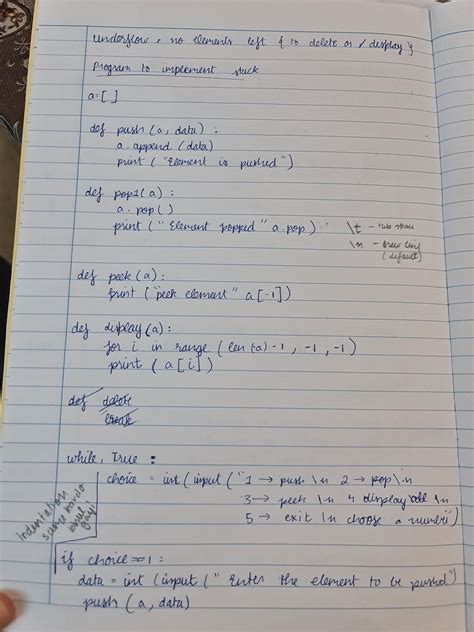 Underflow, no elements left { to delete or / display }
Program to implement stack
a=[ ]
def push (a, data) :
a. append (data)
print ("Element is pushed")
def pop1(a) :
a. pop ( )
print ("Element popped" a.pop) \t - tab
\n - new line
(default)
def peek (a) :
print ("peek element" a[-1])
def display (a) :
for i in range (len(a)-1, -1, -1)
print ( a[i])
def delete
break
while True :
choice = int (input ("1 → push \n 2 → pop\n
3 → peek \n 4 display all \n
5 → exit \n choose a number")
Indentation
if choice==1 :
data = int (input (" Enter the element to be pushed")
push (a, data)